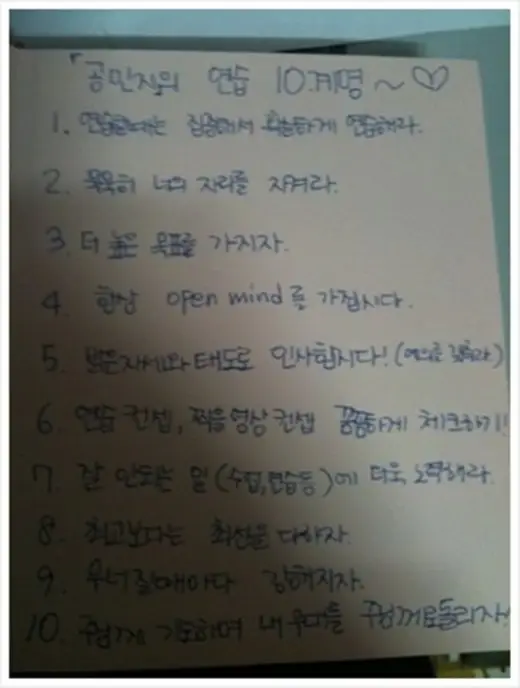 「공민지의 연습 10계명~♡
1. 연습할때는 집중해서 확실하게 연습해라.
2. 묵묵히 너의 자리를 지켜라.
3. 더 높은 목표를 가지자.
4. 항상 open mind를 가집시다.
5. 바른자세와 태도로 인사합시다! (예의를 갖춰라)
6. 연습 컨셉, 찍을영상컨셉 꼼꼼하게 체크하기!
7. 잘 안되는 일 (수업,연습등)에 더욱 노력해라.
8. 최고보다는 최선을 다하자.
9. 무너질때마다 강해지자.
10. 주님께 기도하며 내 무대를 주님께로돌리자!